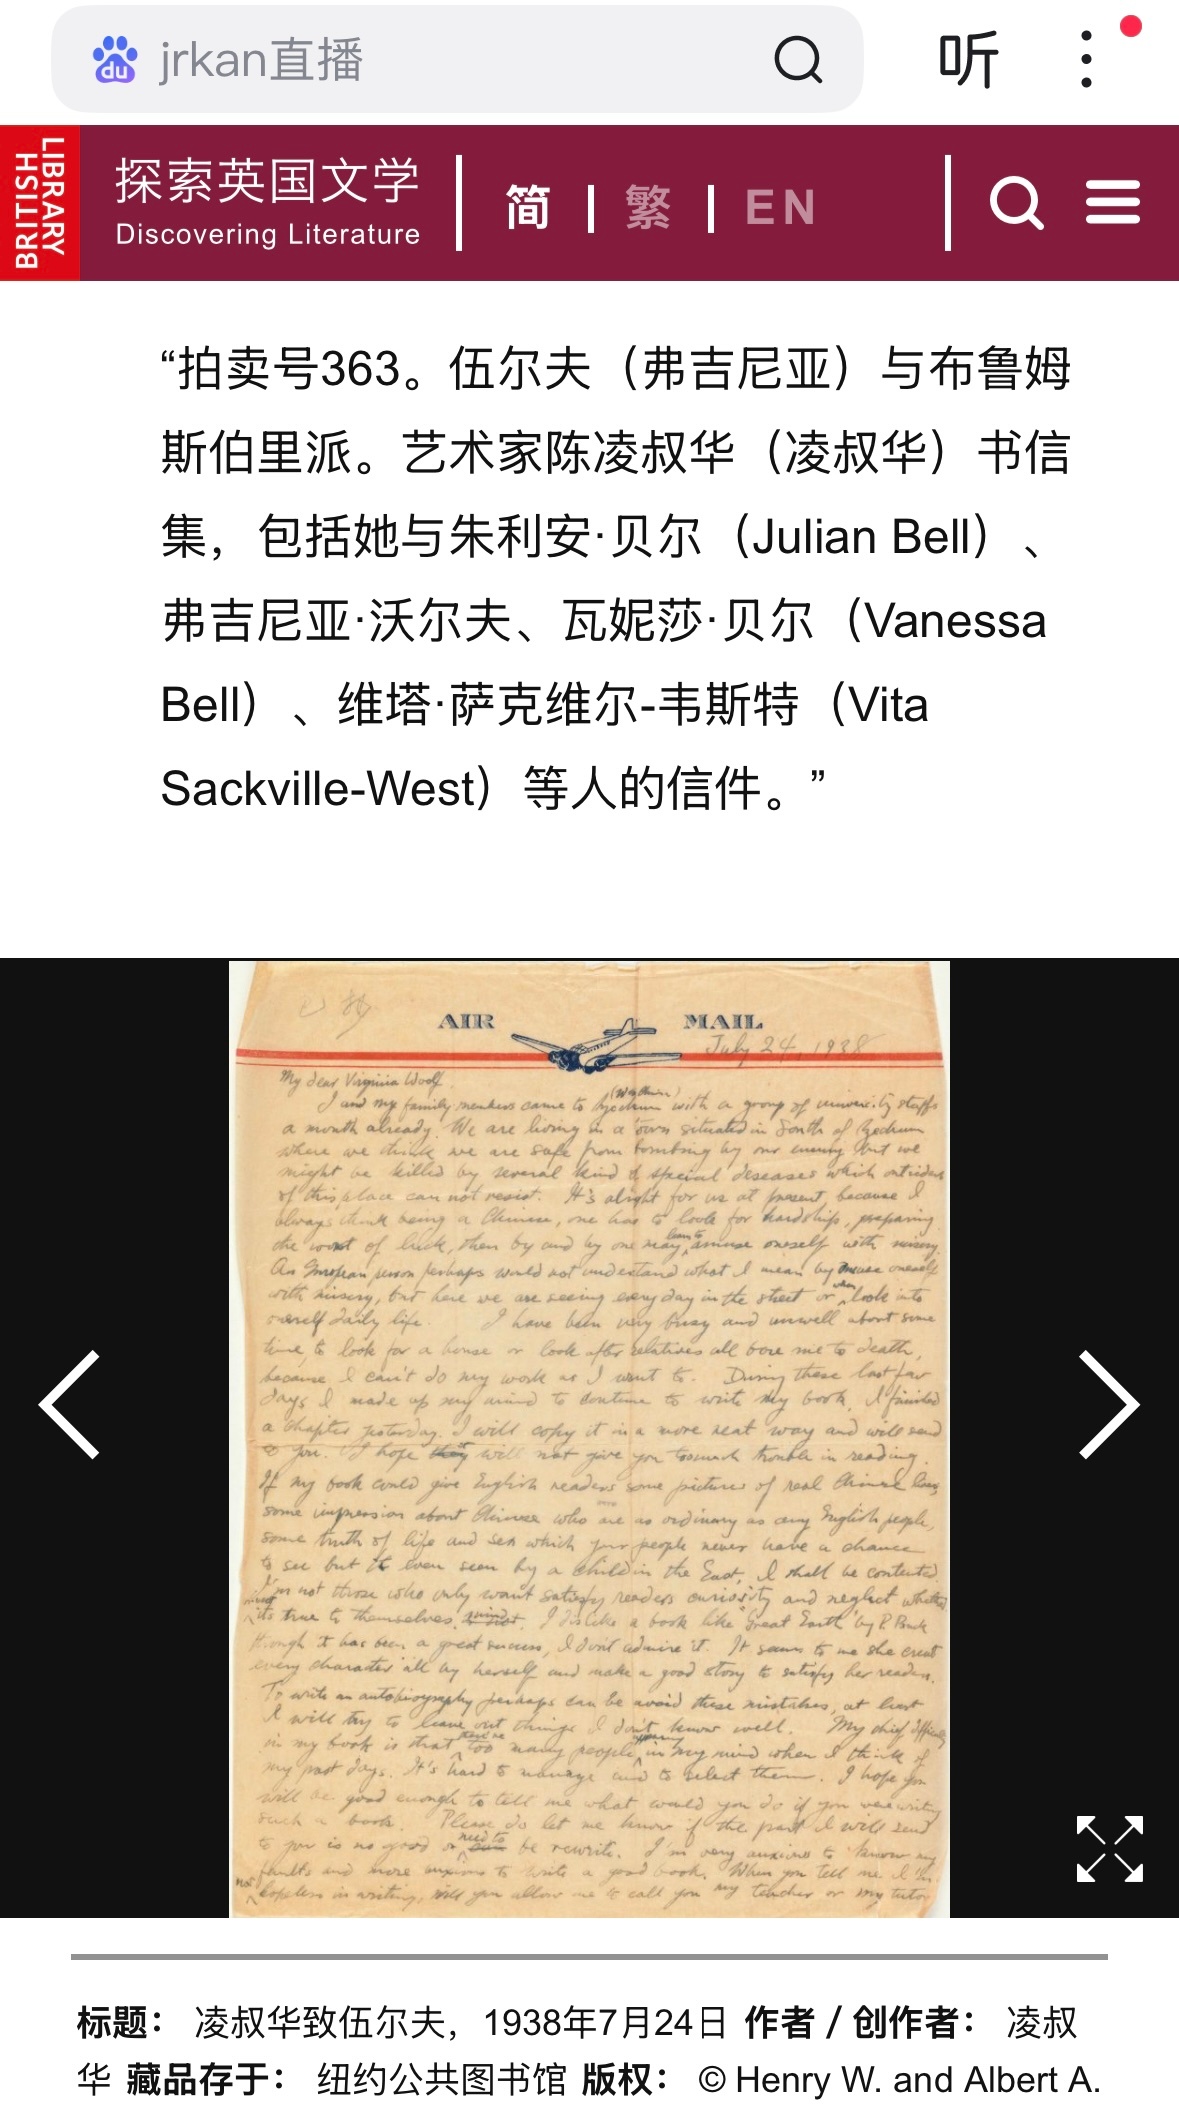 jrkan直播
听
BRITISH
LIBRARY
探索英国文学
Discovering Literature
简 繁 EN
“拍卖号363。伍尔夫（弗吉尼亚）与布鲁姆
斯伯里派。艺术家陈凌叔华（凌叔华）书信
集，包括她与朱利安·贝尔（Julian Bell）、
弗吉尼亚·沃尔夫、瓦妮莎·贝尔（Vanessa
Bell）、维塔·萨克维尔-韦斯特（Vita
Sackville-West）等人的信件。”
AIR MAIL
July 24, 1938
My dear Virginia Woolf,
I and my family members came to with a group of university staffs
a month already. We are living in a town situated in South of
where we think we are safe from bombing by our enemy but we
might be killed by several kind of special diseases which outsiders
of this place can not resist. It's alright for us at present, because I
always think being a Chinese, one has to look for hardship, preparing
the worst of luck, then by and by one may learn to amuse oneself with misery.
An European person perhaps would not understand what I mean by amuse oneself
with misery, but here we are seeing every day in the street or when look into
oneself daily life. I have been very busy and unwell about some
time, to look for a house or look after relatives all bore me to death,
because I can't do my work as I want to. During these last few
days I made up my mind to continue to write my book. I finished
a chapter yesterday. I will copy it in a more neat way and will send
to you. I hope will not give you too much trouble in reading.
If my book could give English readers some picture of real Chinese lives,
some impression about Chinese who are as ordinary as any English people,
some truth of life and sex which your people never have a chance
to see but it even seen by a child in the East, I shall be contented.
I'm not those who only want satisfy readers curiosity and neglect whether
its true to themselves. I dislike a book like "Great Earth" by P. Buck
though it has been a great success, I don't admire it. It seems to me she creat
every character all by herself and make a good story to satisfy her readers.
To write an autobiography perhaps can be avoid these mistakes, at least
I will try to leave out things I don't know well. My chief difficulty
in my book is that there're too many people in my mind when I think of
my past days. It's hard to manage and to select them. I hope you
will be good enough to tell me what would you do if you were writing
such a book. Please do let me know if the part I will send
to you is no good or need to be rewrite. I'm very anxious to know my
faults and more anxious to write a good book. When you tell me I'm
not hopeless in writing, will you allow me to call you my teacher or my tutor
标题： 凌叔华致伍尔夫，1938年7月24日 作者 / 创作者： 凌叔
华 藏品存于： 纽约公共图书馆 版权： © Henry W. and Albert A.